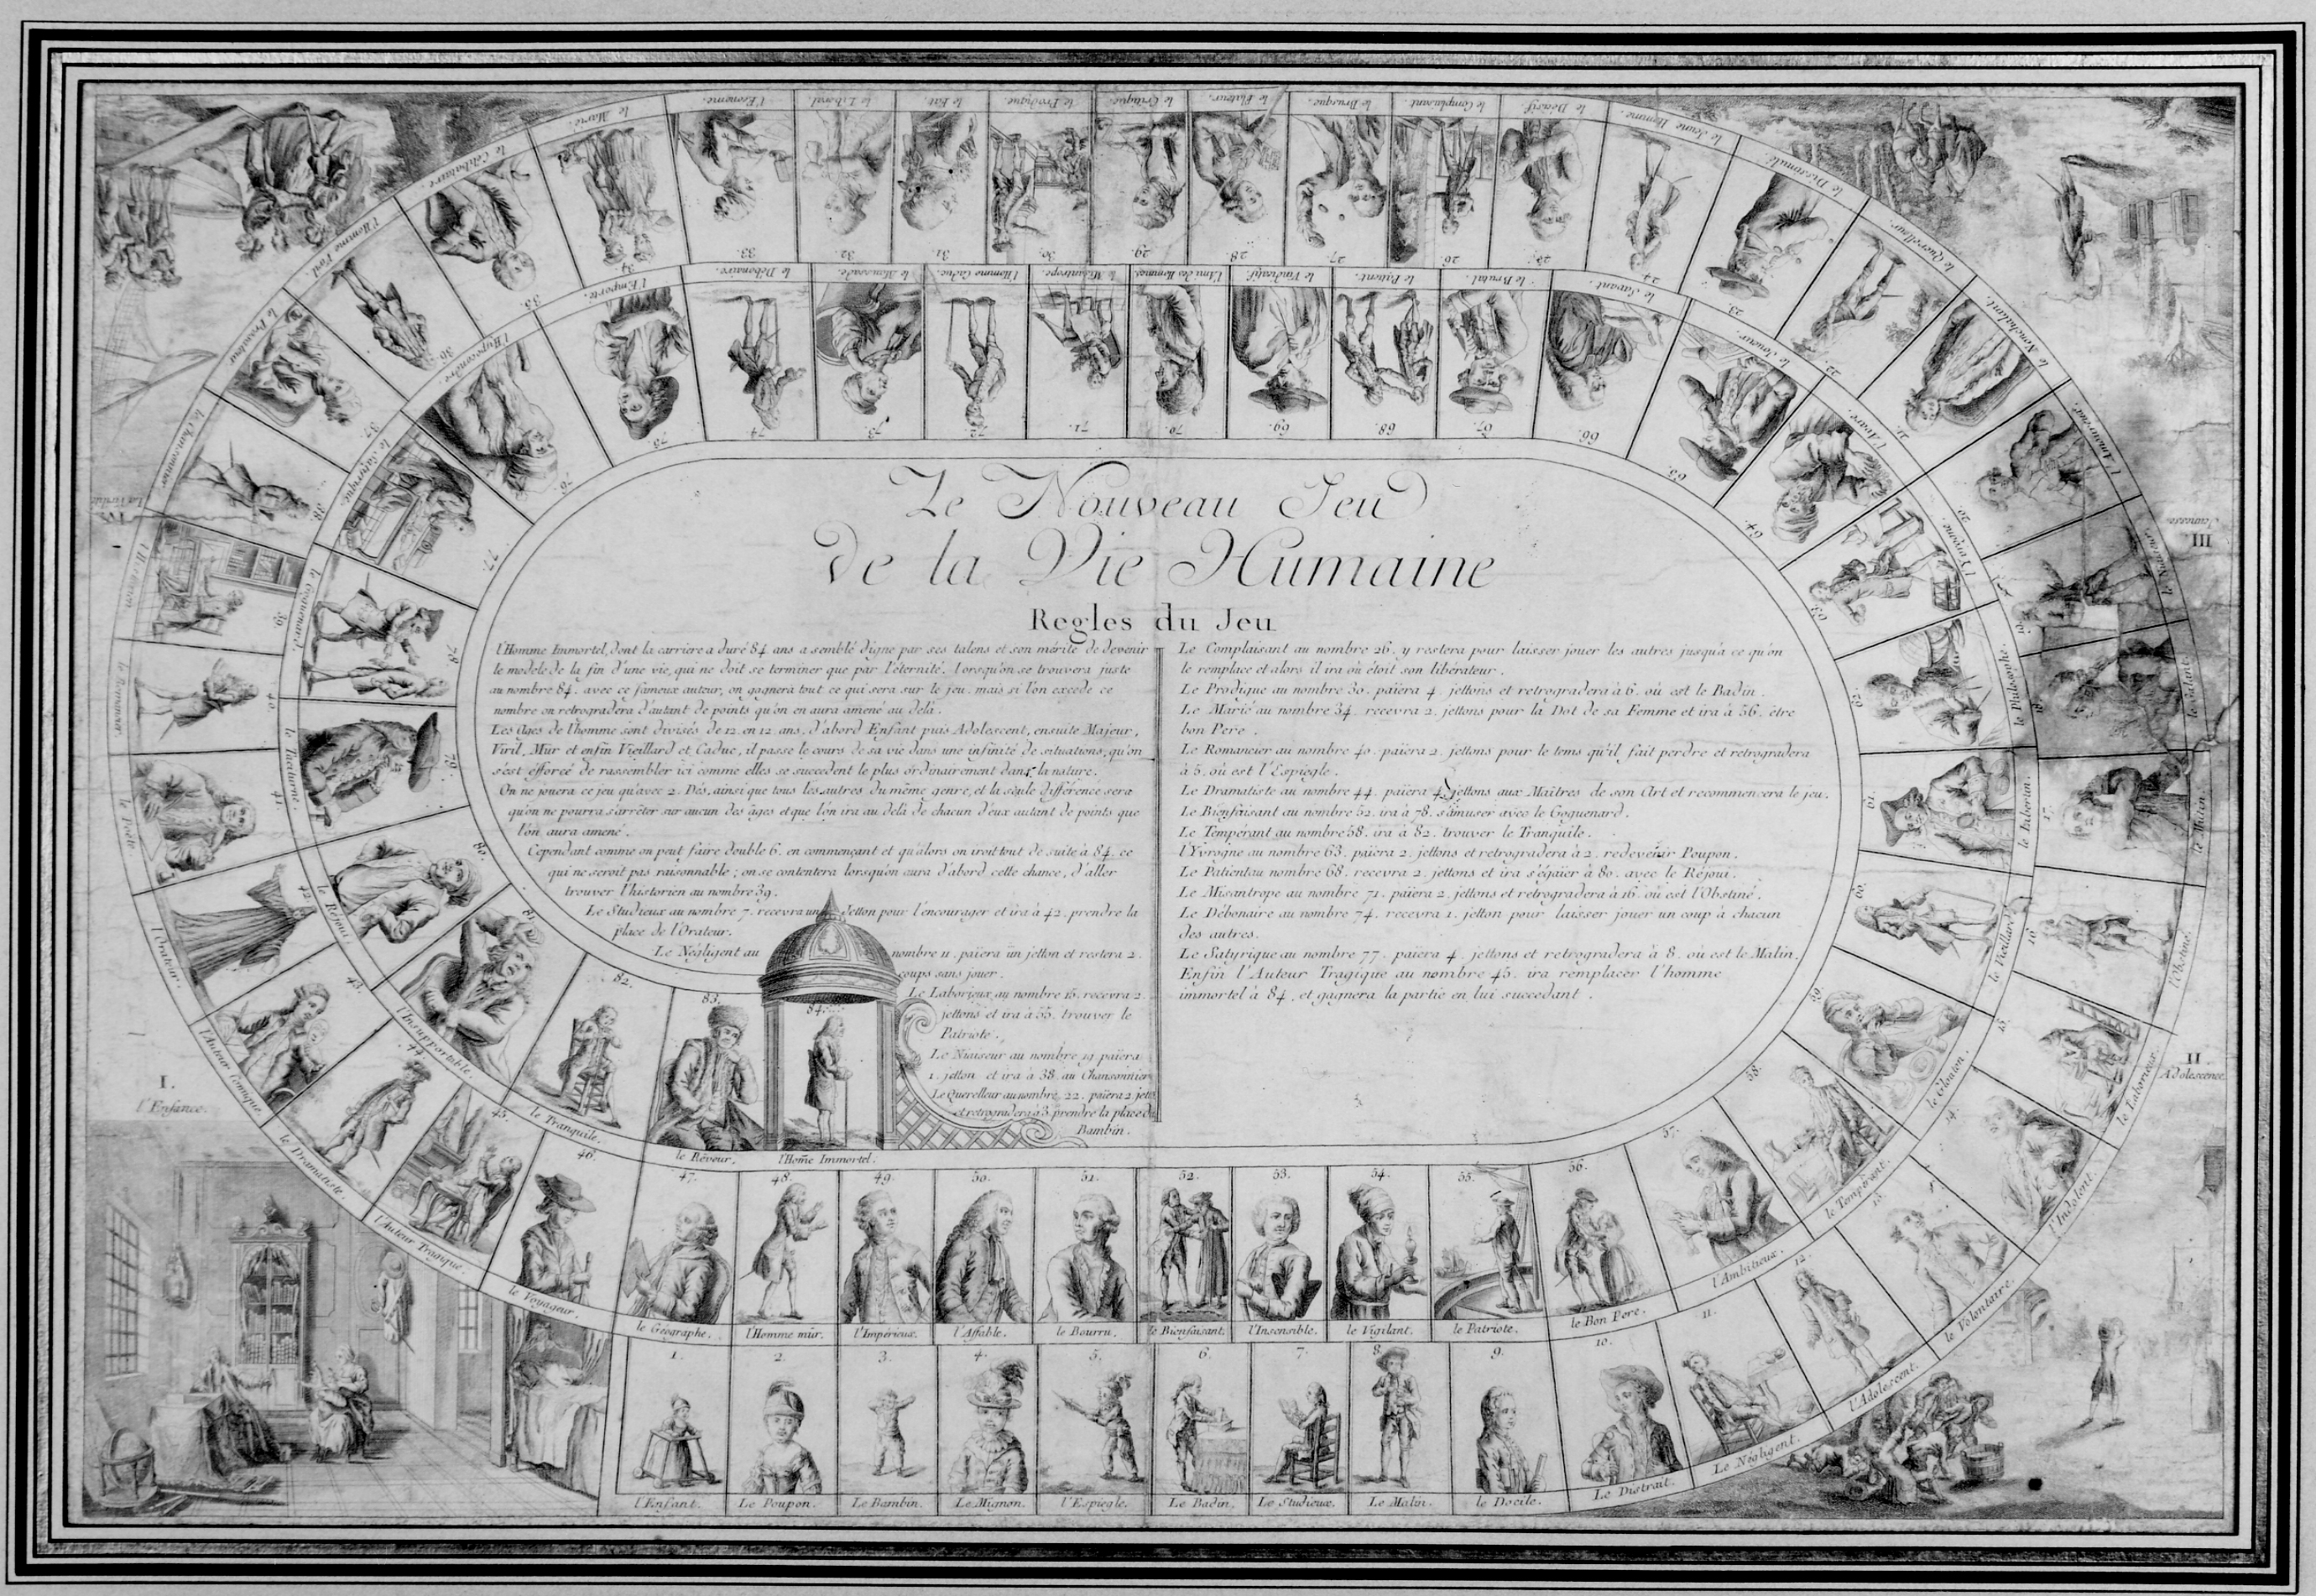 Le Nouveau Jeu
de la Vie Humaine
Regles du Jeu
l'Homme Immortel, dont la carriere a duré 84 ans a semblé digne par ses talens et son mérite de devenir
le modele de la fin d'une vie, qui ne doit se terminer que par l'éternité. Lorsqu'on se trouvera juste
au nombre 84. avec ce fameux auteur, on gagnera tout ce qui sera sur le jeu, mais si l'on excede ce
nombre on retrogradera d'autant de points qu'on en aura amené au delà.
Les Ages de l'homme sont divisés de 12 en 12 ans, d'abord Enfant puis Adolescent, ensuite Majeur,
Viril, Mûr et enfin Vieillard et Caduc, il passe le cours de sa vie dans une infinité de situations, qu'on
s'est éfforcé de rassembler ici comme elles se succedent le plus ordinairement dans la nature.
On ne jouera ce jeu qu'avec 2. Dés, ainsi que tous les autres du même genre, et la seule différence sera
qu'on ne pourra s'arrêter sur aucun des âges et que l'on ira au delà de chacun d'eux autant de points que
l'on aura amené.
Cependant comme on peut faire double 6. en commençant et qu'alors on iroit tout de suite à 84. ce
qui ne seroit pas raisonnable ; on se contentera lorsqu'on aura d'abord cette chance, d'aller
trouver l'historien au nombre 39.
Le Studieux au nombre 7. recevra un Jetton pour l'encourager et ira à 42. prendre la
place de l'Orateur.
Le Négligent au nombre 11. païera un jetton et restera 2.
coups sans jouer.
Le Laborieux au nombre 15. recevra 2.
jettons et ira à 55. trouver le
Patriote.
Le Niaiseur au nombre 19 païera
1. jetton et ira à 38. au Chansonnier
Le Querelleur au nombre 22. païera 2. jett.
et retrogradera à 3. prendre la place du
Bambin.
Le Complaisant au nombre 26. y restera pour laisser jouer les autres jusqu'à ce qu'on
le remplace et alors il ira où étoit son libérateur.
Le Prodigue au nombre 30. païera 4. jettons et retrogradera à 6. où est le Badin.
Le Marié au nombre 34. recevra 2. jettons pour la Dot de sa Femme et ira à 56. être
bon Pere.
Le Romancier au nombre 40. païera 2. jettons pour le tems qu'il fait perdre et retrogradera
à 5. où est l'Espiegle.
Le Dramatiste au nombre 44. païera 4. jettons aux Maîtres de son Art et recommencera le jeu.
Le Bienfaisant au nombre 52. ira à 78. s'amuser avec le Goguenard.
Le Tempérant au nombre 58. ira à 82. trouver le Tranquile.
l'Yvrogne au nombre 63. païera 2. jettons et retrogradera à 2. redevenir Poupon.
Le Patient au nombre 68. recevra 2. jettons et ira s'égaier à 80. avec le Réjoui.
Le Misantrope au nombre 71. païera 2. jettons et retrogradera à 16. où est l'Obstiné.
Le Débonaire au nombre 74. recevra 1. jetton pour laisser jouer un coup à chacun
des autres.
Le Satyrique au nombre 77. païera 4. jettons et retrogradera à 8. où est le Malin.
Enfin l'Auteur Tragique au nombre 45. ira remplacer l'homme
immortel à 84. et gagnera la partie en lui succedant.
I.
l'Enfance.
II
Adolescence
III
Jeunesse
IV
1.
l'Enfant.
2.
Le Poupon.
3.
Le Bambin.
4.
Le Mignon.
5.
l'Espiegle.
6.
Le Badin.
7.
Le Studieux.
8.
Le Malin.
9.
le Docile.
10.
Le Distrait.
11.
Le Négligent.
12.
l'Adolescent.
13.
le Volontaire.
14.
l'Indolent.
15.
le Laborieux.
16.
l'Obstiné.
17.
le Malin.
18.
le Galant.
19.
le Niaiseur.
20.
l'Amoureux.
21.
le Nonchalant.
22.
le Querelleur.
23.
le Dissimulé.
24.
le Jeune Homme.
25.
le Décisif.
26
le Complaisant.
27.
le Brusque.
28.
le Flateur.
29.
le Critique.
30.
le Prodigue.
31.
le Fat.
32.
le Libéral.
33.
l'Econome.
34.
le Marié.
35
le Célibataire.
36
l'Homme Viril.
37.
le Prosateur
38.
le Chansonnier
39.
l'Historien.
40.
le Romancier
41.
le Poëte
42.
l'Orateur.
43.
l'Auteur Comique.
44.
le Dramatiste.
45.
l'Auteur Tragique.
46.
le Voyageur.
47.
le Géographe.
48.
l'Homme mûr.
49.
l'Impérieux.
50.
l'Affable.
51.
le Bourru.
52.
le Bienfaisant.
53.
l'Insensible.
54.
le Vigilant.
55.
le Patriote.
56.
le Bon Pere.
57.
l'Ambitieux.
58.
le Tempérant.
59.
le Glouton.
60.
le Vieillard.
61.
le Libertin.
62.
le Philosophe.
63.
l'Yvrogne.
64.
l'Avare.
65.
le Joueur.
66.
le Savant.
67.
le Brutal.
68.
le Patient.
69.
le Vindicatif
70.
l'Ami des Hommes
71.
le Misantrope.
72.
l'Homme Caduc.
73.
le Maussade.
74.
le Débonaire.
75.
l'Emporté.
76.
l'Hypocondre.
77.
le Satyrique.
78.
le Goguenard.
79.
le Taciturne.
80.
le Réjoui.
81.
l'Insupportable.
82.
le Tranquile.
83.
le Rêveur.
84.
l'Home Immortel.